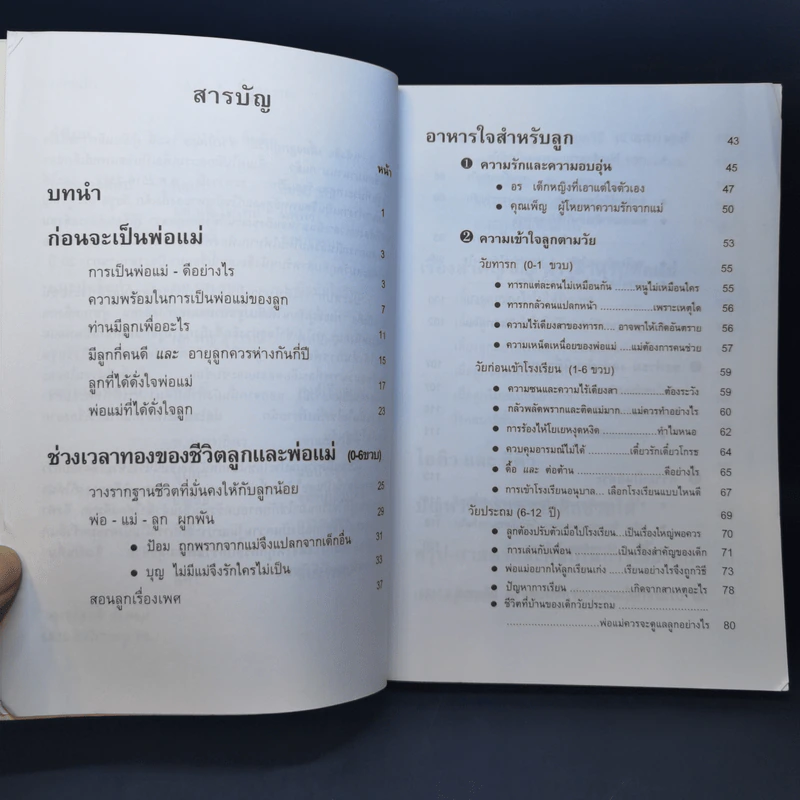 สารบัญ
หน้า
บทนำ 1
ก่อนจะเป็นพ่อแม่ 3
การเป็นพ่อแม่ - ดีอย่างไร 3
ความพร้อมในการเป็นพ่อแม่ของลูก 7
ท่านมีลูกเพื่ออะไร 11
มีลูกกี่คนดี และ อายุลูกควรห่างกันกี่ปี 15
ลูกที่ได้ดั่งใจพ่อแม่ 17
พ่อแม่ที่ได้ดั่งใจลูก 23
ช่วงเวลาทองของชีวิตลูกและพ่อแม่ (0-6ขวบ)
วางรากฐานชีวิตที่มั่นคงให้กับลูกน้อย 25
พ่อ - แม่ - ลูก ผูกพัน 29
• ป้อม ถูกพรากจากแม่จึงแปลกจากเด็กอื่น 31
• บุญ ไม่มีแม่จึงรักใครไม่เป็น 33
สอนลูกเรื่องเพศ 37
อาหารใจสำหรับลูก 43
❶ ความรักและความอบอุ่น 45
• อร เด็กหญิงที่เอาแต่ใจตัวเอง 47
• คุณเพ็ญ ผู้โหยหาความรักจากแม่ 50
❷ ความเข้าใจลูกตามวัย 53
วัยทารก (0-1 ขวบ) 55
• ทารกแต่ละคนไม่เหมือนกัน ........หนูไม่เหมือนใคร 55
• ทารกกลัวคนแปลกหน้า ...............เพราะเหตุใด 56
• ความไร้เดียงสาของทารก.... อาจพาให้เกิดอันตราย 56
• ความเหน็ดเหนื่อยของพ่อแม่ ....แม่ต้องการคนช่วย 57
วัยก่อนเข้าโรงเรียน (1-6 ขวบ) 59
• ความซนและความไร้เดียงสา .............ต้องระวัง 59
• กลัวพลัดพรากและติดแม่มาก....แม่ควรทำอย่างไร 60
• การร้องไห้โยเยหงุดหงิด ................ทำไมหนอ 62
• ควบคุมอารมณ์ไม่ได้ ..........เดี๋ยวรักเดี๋ยวโกรธ 64
• ดื้อ และ ต่อต้าน .......................ดีอย่างไร 65
• การเข้าโรงเรียนอนุบาล... เลือกโรงเรียนแบบไหนดี 67
วัยประถม (6-12 ปี) 69
• ลูกต้องปรับตัวเมื่อไปโรงเรียน...เป็นเรื่องใหญ่พอควร 70
• การเล่นกับเพื่อน ...............เป็นเรื่องสำคัญของเด็ก 71
• พ่อแม่อยากให้ลูกเรียนเก่ง ....เรียนอย่างไรจึงถูกวิธี 73
• ปัญหาการเรียน ...............เกิดจากสาเหตุอะไร 78
• ชีวิตที่บ้านของเด็กวัยประถม .......................
.......................พ่อแม่ควรจะดูแลลูกอย่างไร 80